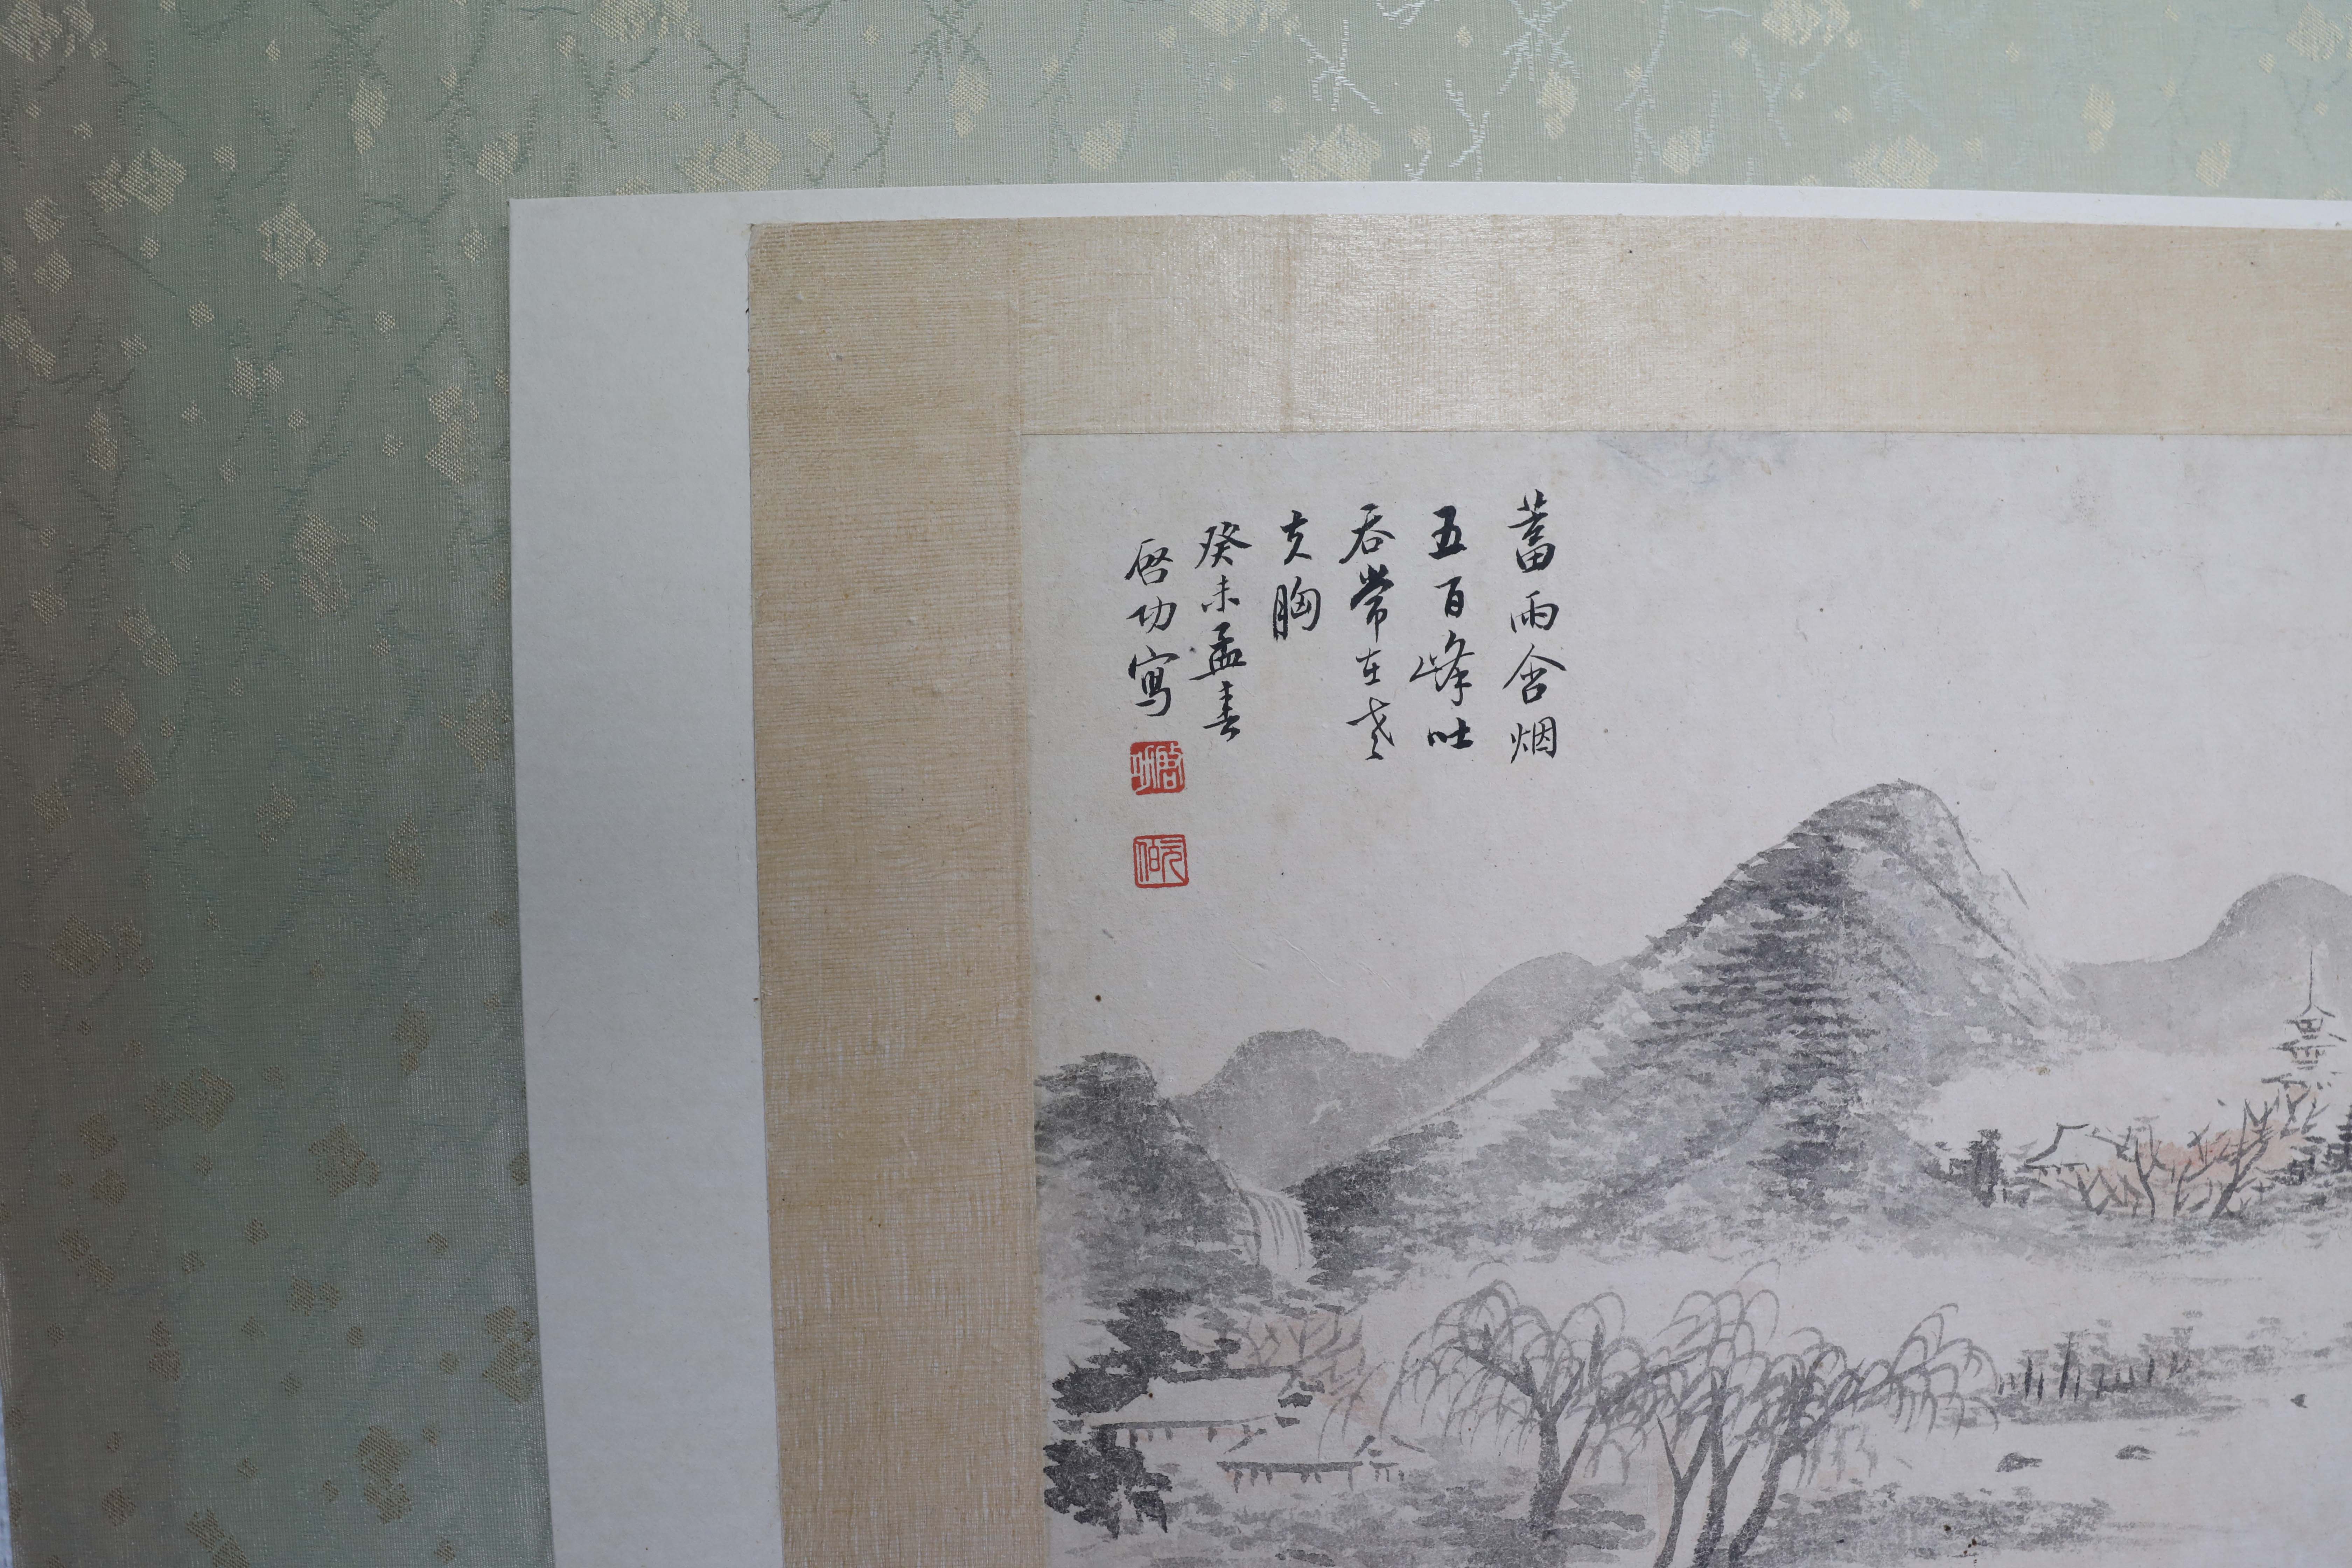 蓄雨含烟
五百峰吐
吞常在老
夫胸
癸未孟春
启功写
启功
元伯